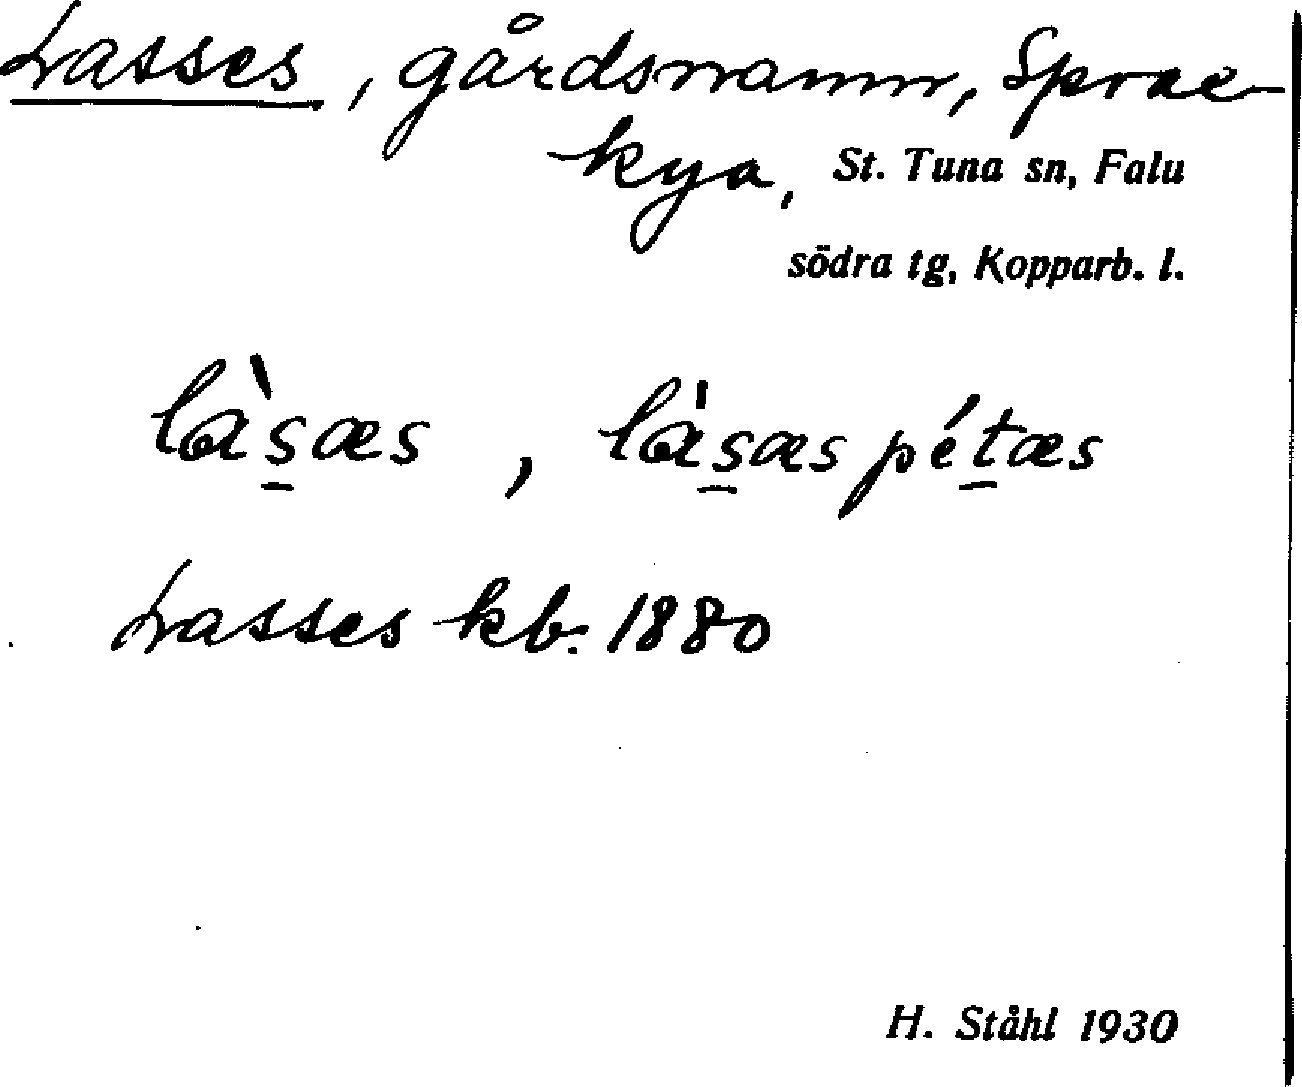 Lasses, gårdsnamn, Sprae-
kya, St. Tuna sn, Falu
södra tg, Kopparb. l.
là̱sæs, là̱sæs péṯæs
Lasses kb. 1880
H. Ståhl 1930